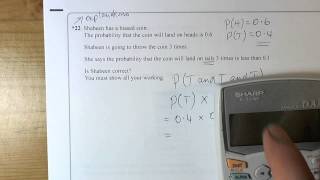 explanations
*22 Shaheen has a biased coin.
The probability that the coin will land on heads is 0.6
Shaheen is going to throw the coin 3 times.
She says the probability that the coin will land on tails 3 times is less than 0.1
Is Shaheen correct?
You must show all your working.
P(H) = 0.6
P(T) = 0.4
P(T and T and T)
P(T) ×
= 0.4 ×
=
SHARP